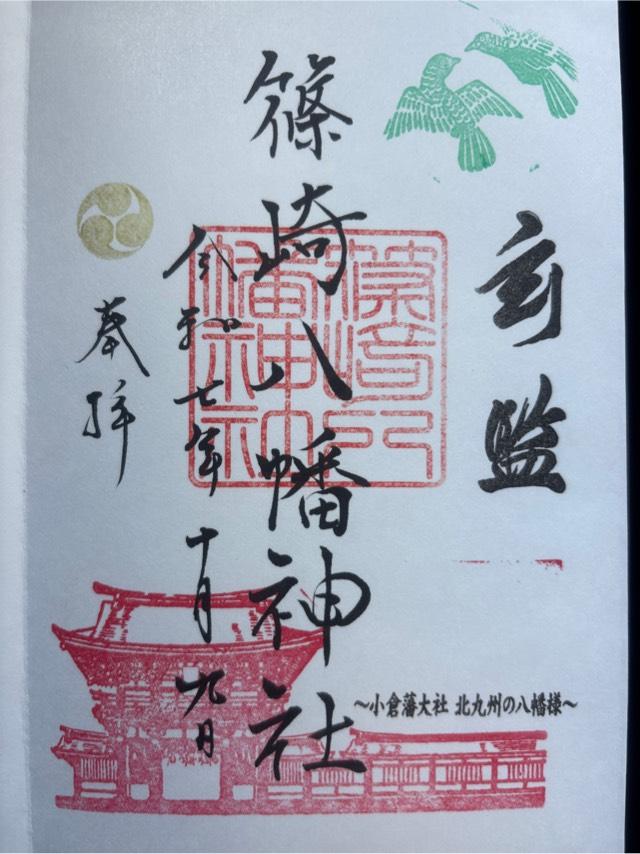 玄監
篠崎八幡神社
令和七年十月九日
奉拝
篠崎八幡神社
〜小倉藩大社 北九州の八幡様〜